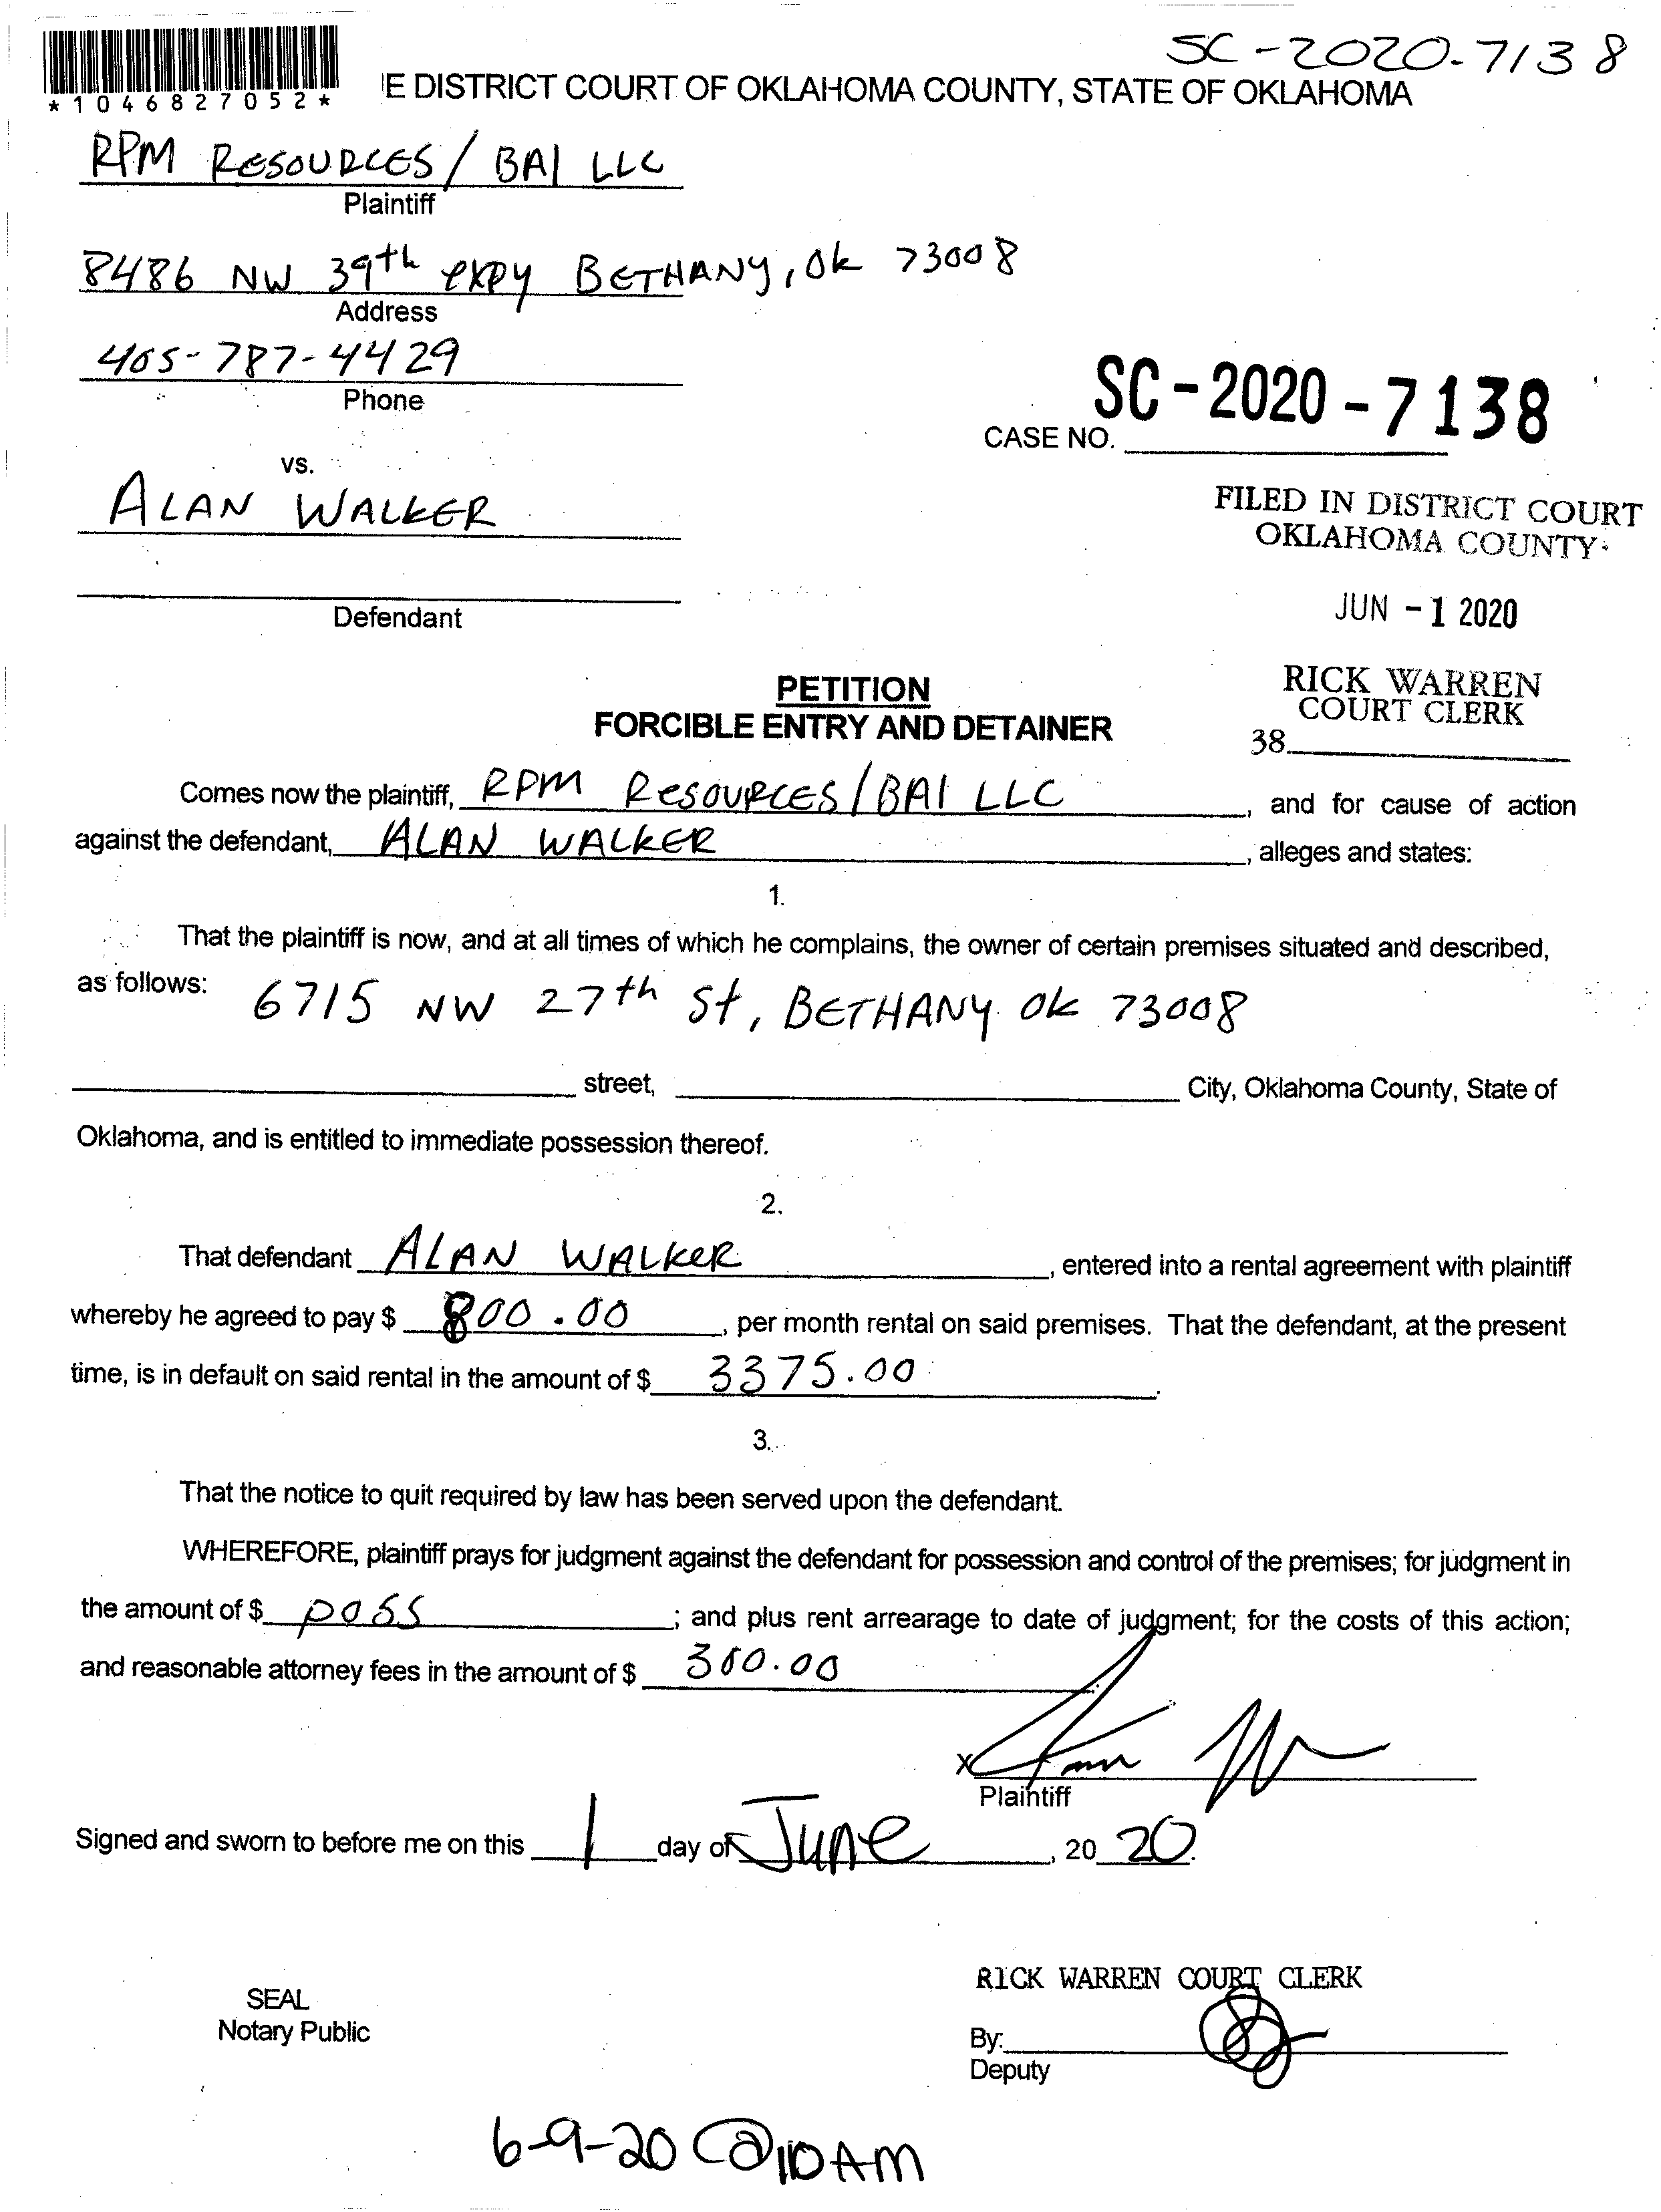 SC-2020-7138
*1046827052*
E DISTRICT COURT OF OKLAHOMA COUNTY, STATE OF OKLAHOMA
RPM RESOURCES / BAI LLC
Plaintiff
8486 NW 39th expy BETHANY, Ok 73008
Address
405-787-4429
Phone
SC-2020-7138
CASE NO.
vs.
ALAN WALKER
FILED IN DISTRICT COURT
OKLAHOMA COUNTY
Defendant
JUN -1 2020
RICK WARREN
COURT CLERK
38
PETITION
FORCIBLE ENTRY AND DETAINER
Comes now the plaintiff, RPM RESOURCES / BAI LLC, and for cause of action
against the defendant, ALAN WALKER, alleges and states:
1.
That the plaintiff is now, and at all times of which he complains, the owner of certain premises situated and described,
as follows: 6715 NW 27th St, BETHANY Ok 73008
street, City, Oklahoma County, State of
Oklahoma, and is entitled to immediate possession thereof.
2.
That defendant ALAN WALKER, entered into a rental agreement with plaintiff
whereby he agreed to pay $ 800.00, per month rental on said premises. That the defendant, at the present
time, is in default on said rental in the amount of $ 3375.00.
3.
That the notice to quit required by law has been served upon the defendant.
WHEREFORE, plaintiff prays for judgment against the defendant for possession and control of the premises; for judgment in
the amount of $ poss; and plus rent arrearage to date of judgment; for the costs of this action;
and reasonable attorney fees in the amount of $ 300.00
x
Plaintiff
Signed and sworn to before me on this 1 day of June, 20 20.
RICK WARREN COURT CLERK
SEAL
Notary Public
By:
Deputy
6-9-20 @ 10 AM